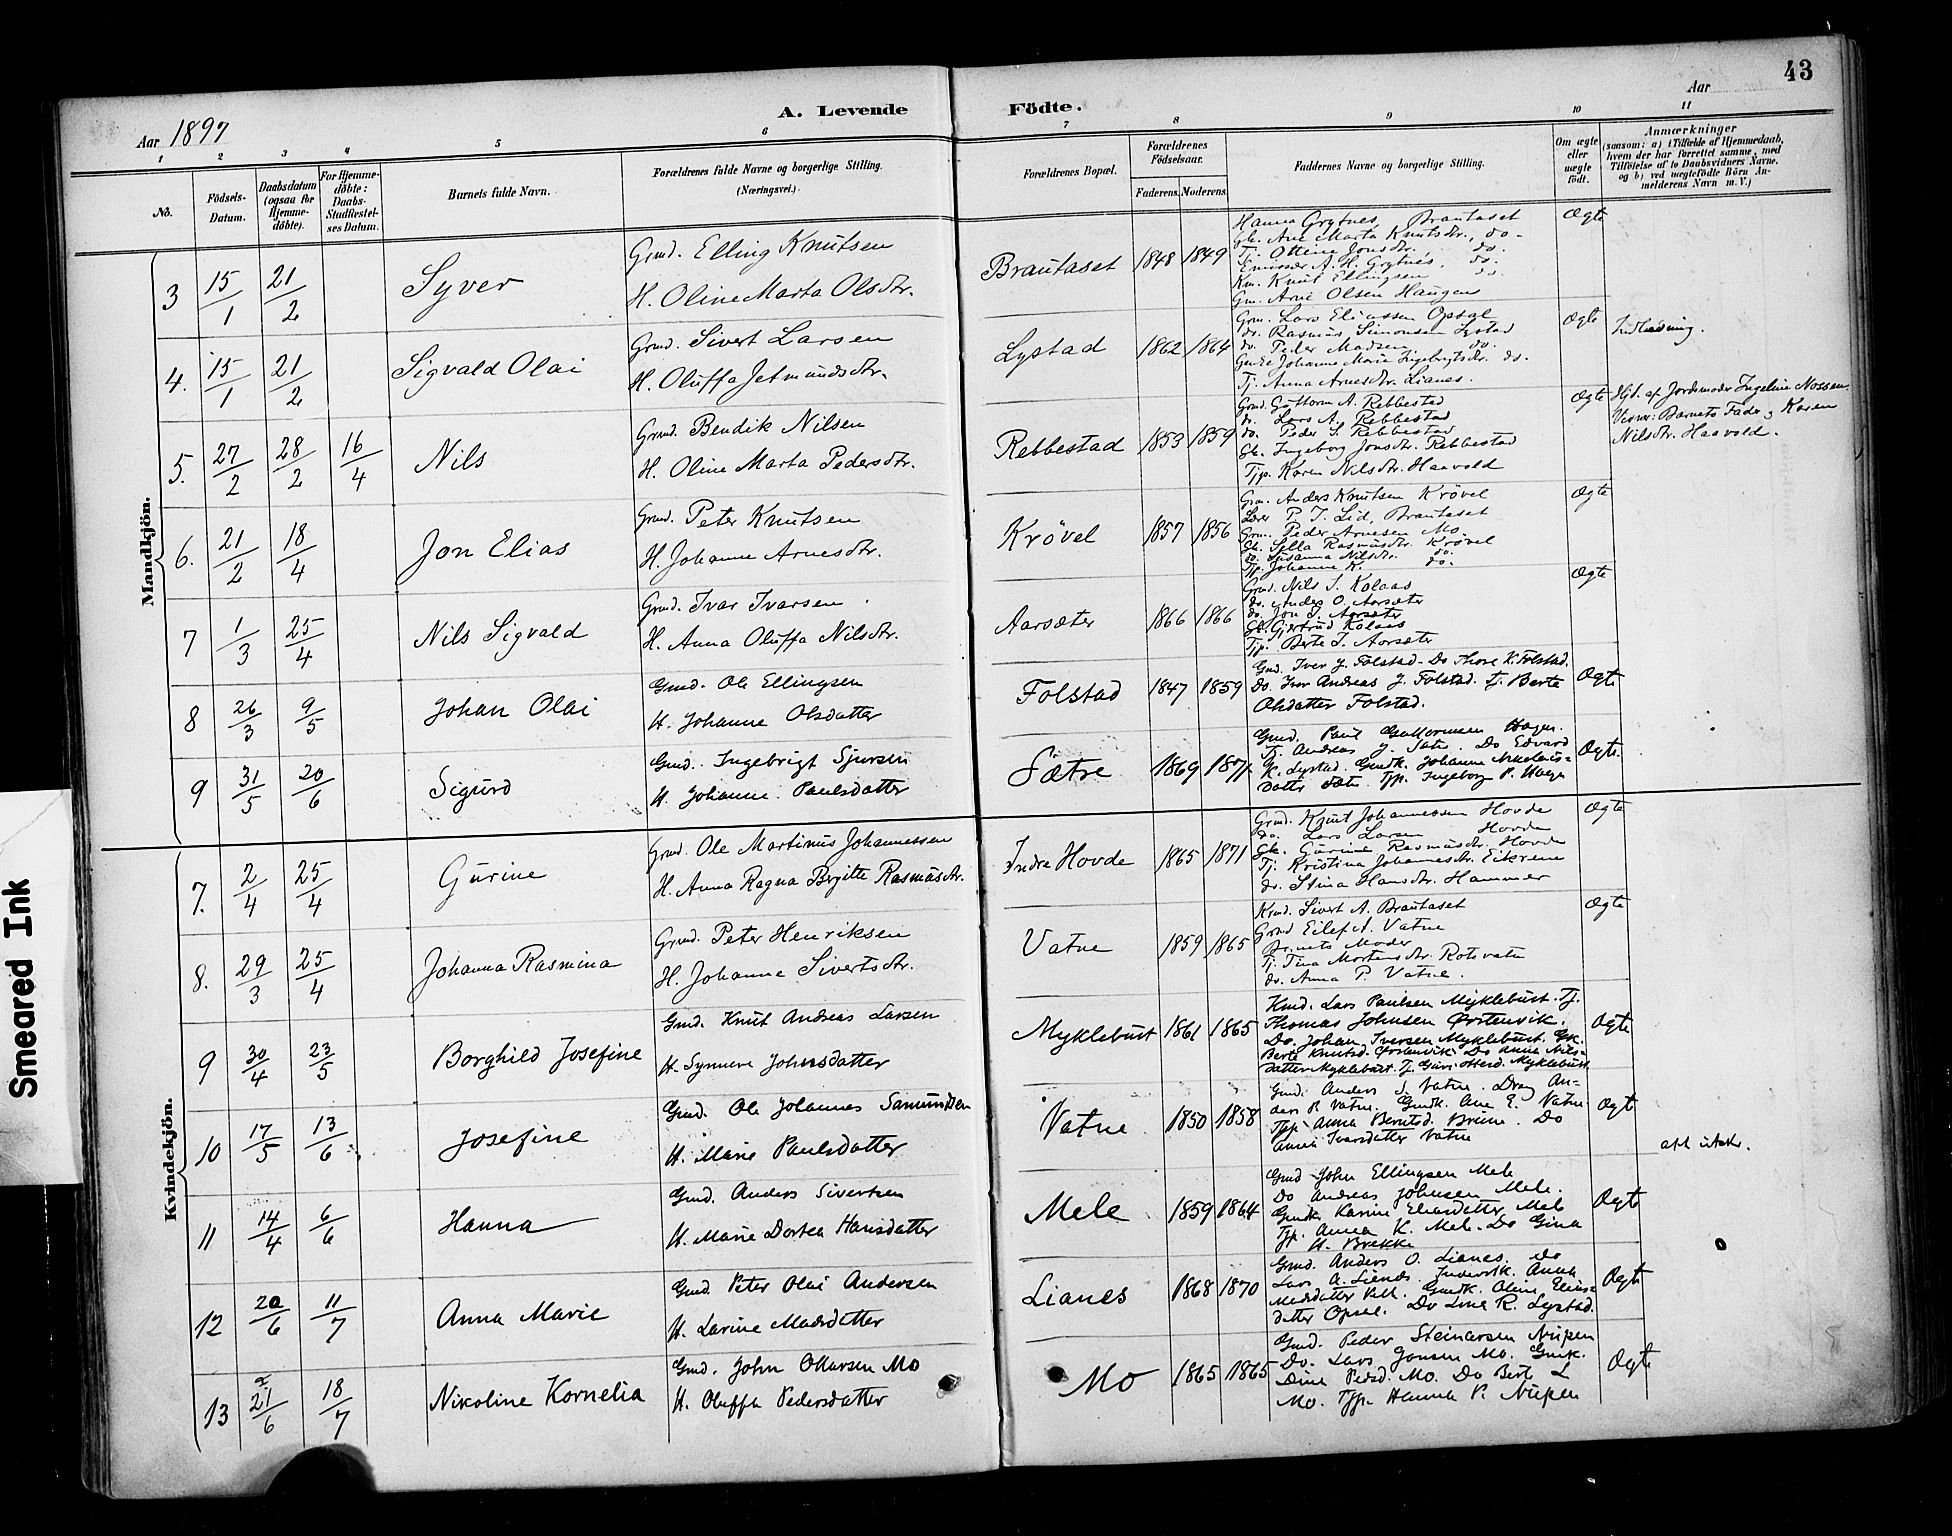 43
A. Levende Födte.
Aar 1897
Aar
1 2 3 4 5 6 7 8 9 10 11
No.
Födsels-
Datum.
Daabsdatum
(ogsaa for
Hjemme-
döbte).
For Hjemme-
döbte:
Daabs-
Stadfæstel-
ses Datum.
Barnets fulde Navn.
Forældrenes fulde Navne og borgerlige Stilling.
(Næringsvei.)
Forældrenes Bopæl.
Forældrenes
Födselsaar.
Faderens. Moderens.
Faddernes Navne og borgerlige Stilling.
Om ægte
eller
uægte
født.
Anmærkninger
(saasom: a) i Tilfælde af Hjemmedaab,
hvem der har forrettet samme, med
Tilföielse af to Daabsvidners Navne,
og b) ved uegtefödte Börn An-
melderens Navn m. V.)
Mandkjön.
3 15/1 21/2 Syver
Grmd. Elling Knutsen
H. Oline Marta Olsdtr.
Brautaset 1848 1849
Hanna Grytnes, Brautaset
Gk. Ane Marta Knutsdtr., do.
Tj. Ottine Jonsdtr. do.
Emissær A. H. Grytnes, do.
Km. Knut Ellingsen do.
Gm. Arne Olsen Haugen
Ægte
4. 15/1 21/2 Sigvald Olai
Grmd. Sivert Larsen
H. Oluffa Jetmundsdtr.
Lystad 1862 1864
Grm. Lars Eliassen Opsal
do. Rasmus Simonsen Lystad
do. Peder Madsen do.
Johanne Marie Ingebrigtsdtr. do.
Tj. Anna Arnesdtr. Lianes.
Ægte
Indløsning.
5. 27/2 28/2 16/4 Nils
Grmd. Bendik Nilsen
H. Oline Marta Pedersdtr.
Rebbestad 1853 1859
Grmd. Guttorm A. Rebbestad
do. Lars A. Rebbestad
do. Peder S. Rebbestad
Gk. Ingeborg Jonsdtr. Rebbestad
Tjp. Karen Nilsdtr. Haavold
Ægte
Hjd. af Jordmoder Ingeline Nossen.
Vidner: Barnets Fader og Karen
Nilsdtr. Haavold.
6. 21/2 18/4 Jon Elias
Grmd. Peter Knutsen
H. Johanne Arnesdtr.
Krövel 1857 1856
Grm. Anders Knutsen Krövel
Lærer P. T. Lid, Brautaset
Grm. Peder Arnesen Mo
Gk. Sylla Rasmusdtr. Krövel
do. Susanna Nilsdtr. do.
Tjp. Johanne K. do.
Ægte
7 1/3 25/4 Nils Sigvald
Grmd. Ivar Ivarsen
H. Anna Oluffa Nilsdtr.
Aarsæter 1866 1866
Grmd. Nils S. Kolaas
do. Anders O. Aarsæter
do. Jon J. Aarsæter
Gk. Gjertrud Kolaas
Tjp. Berte I. Aarsæter
Ægte
8 26/3 9/5 Johan Olai
Gmd. Ole Ellingsen
H. Johanne Olsdatter
Folstad 1847 1859
Gmd. Iver J. Folstad. Do Thore K. Folstad.
Do. Iver Andreas J. Folstad. Tj. Berte
Olsdatter Folstad.
Ægte
9 31/5 20/6 Sigurd
Gmd. Ingebrigt Sjursen
H. Johanne Paulsdatter
Sætre 1869 1871
Gmd. Paul Guttormsen Hagen.
Tj. Andreas J. Sætr. Do Edvard
K. Lystad. Gmdk. Johanne Nikolais-
datter Sætr. Tjp. Ingeborg P. Hagen
Ægte
Kvindekjön.
7. 2/4 25/4 Gurine
Grmd. Ole Martinus Johannessen
H. Anna Ragna Birgitte Rasmusdtr.
Indre Hovde 1865 1871
Grmd. Knut Johannessen Hovde
do. Lars Larsen Hovde
Gk. Gurine Rasmusdtr. Hovde
Tj. Kristina Johannesdtr. Eikrem
do. Stina Hansdtr. Hammer
Ægte
8. 29/3 25/4 Johanna Rasmina
Grmd. Peter Henriksen
H. Johanne Sivertsdtr.
Vatne 1859 1865
Grmd. Sivert A. Brautaset
Grmd Eilef A. Vatne
Barnets Moder
Tj. Tina Mortensdtr. Rotevatn
do. Anna P. Vatne.
Ægte
9 30/4 23/5 Borghild Josefine
Gmd. Knut Andreas Larsen
H. Synnøve Johnsdatter
Myklebust 1861 1865
Kmd. Lars Paulsen Myklebust. Tj.
Thomas Johnsen Ørstenvik.
Do. Johan Iversen Myklebust. Gk.
Berte Knutsd. Ørstenvik. Do Anna Nils-
datter Myklebust. Tj. Guri Ottersd. Myklebust
Ægte
10 17/5 13/6 Josefine
Gmd. Ole Johannes Samundsen
H. Marie Paulsdatter
Vatne 1850 1858
Gmd. Anders S. Vatne. Dreng An-
ders P. Vatne. Gmdk. Ane E. Vatne
Tjp. Anna Berntsd. Brune. Do
Anna Ivarsdatter Vatne
Ægte
11 14/4 6/6 Hanna
Gmd. Anders Sivertsen
H. Marie Dortea Hansdatter
Mele 1859 1864
Gmd John Ellingsen Mele
Do Andreas Johnsen Mele.
Gmdk Karine Eliasdatter Mele
Tjp. Anna K. Mele. Do Gina
H. Brekke
Ægte
12 20/6 11/7 Anna Marie
Gmd Peter Olai Andersen
H. Larine Madsdatter
Lianes 1868 1870
Gmd. Anders O. Lianes, do
Lars A. Lianes. Anna
Madsdatter. Gmdk. Oline Elias-
datter Opsal. Do Lina R. Lystad.
Ægte
13 21/6 18/7 Nikoline Kornelia
Gmd. John Ottarsen Mo
H. Oluffa Pedersdatter
Mo 1865 1865
Gmd. Peder Steinarsen Nupen
Do. Lars Jonsen Mo. Gmk.
Dina Pedsd. Mo. Do Berte L
Mo. Tjp. Hanna P. Nupen
Ægte
Smeared Ink